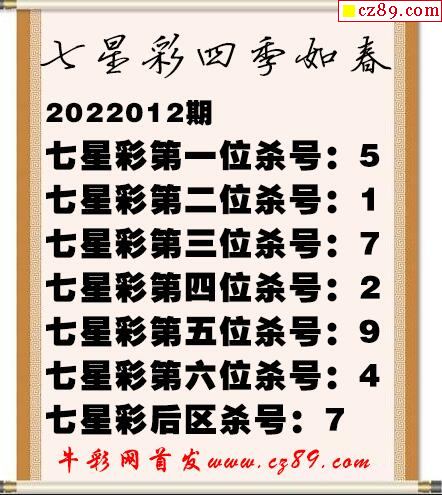 cz89.com
七星彩四季如春
2022012期
七星彩第一位杀号：5
七星彩第二位杀号：1
七星彩第三位杀号：7
七星彩第四位杀号：2
七星彩第五位杀号：9
七星彩第六位杀号：4
七星彩后区杀号：7
牛彩网首发www.cz89.com